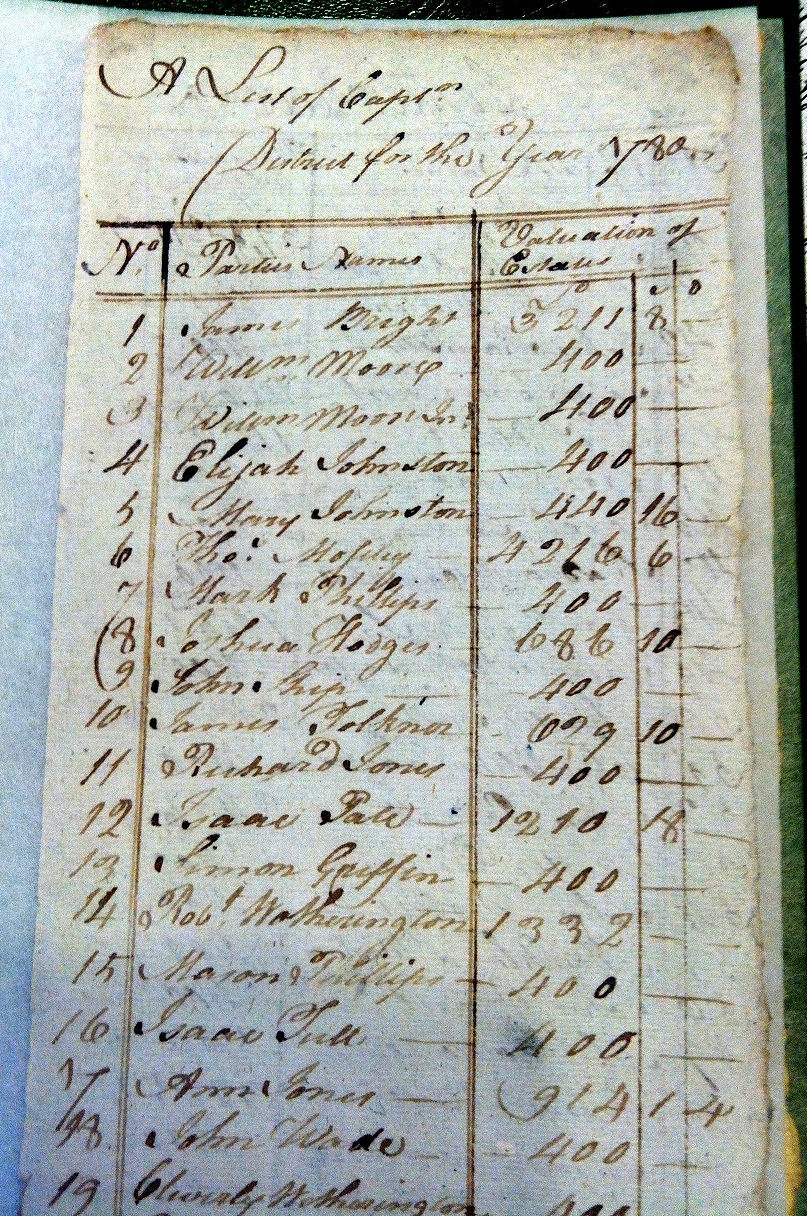 A List of Captn
District for the Year 1780
No Parties Names Valuation of
Estates
1 James Bright 3211 8 —
2 Willm Moore 400 —
3 Willm Moore Jnr — 400 —
4 Elijah Johnston — 400 —
5 Mary Johnston — 440 16 —
6 Thos. — 4216 6 —
7 Mark Phillips — 400 —
8 Joshua Hodges — 686 10 —
9 John — 400 —
10 James - 699 10 —
11 Richard Jones — 400 —
12 Isaac — 1210 18 —
13 Simon Griffin — 400 —
14 Robt Wotherington 1332 —
15 Mason Phillips — 400 —
16 Isaac Tull — 400 —
17 Ann Jones — 914 1 4
18 John Wade — 400 —
19 Wetherington